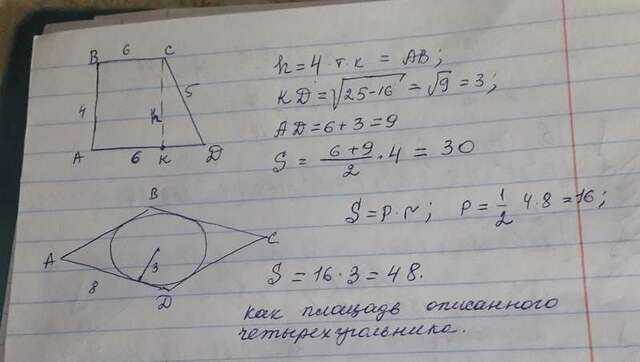 B 6 C
h = 4 т.к = AB;
4 h 5
KD = √25-16 = √9 = 3;
AD = 6+3 = 9
A 6 K D
S = 6+9/2 · 4 = 30
B
S = p · r; P = 1/2 4·8 = 16;
A C
3
8 D
S = 16 · 3 = 48.
как площадь описанного
четырехугольника.